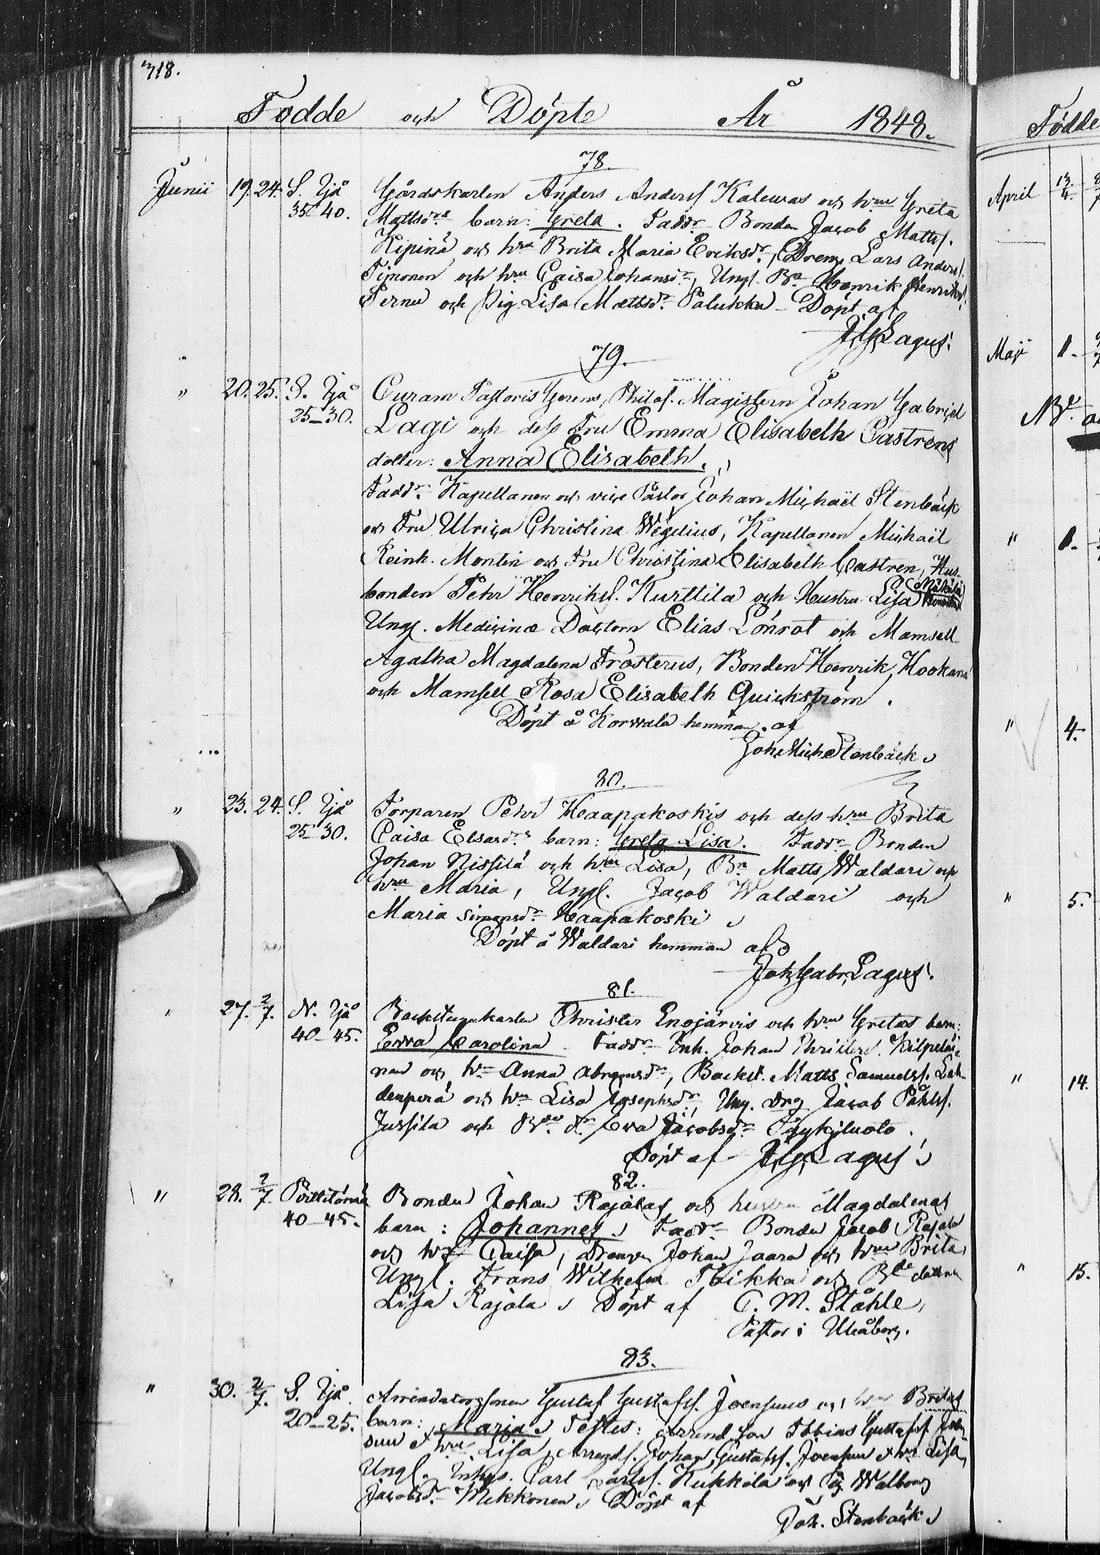 318.
Födde och Döpte År 1848.
78.
Junii 19. 24. S. Ijå Gårdskarlen Anders Anderss Kalewas och hrm Greta
35-40. Mattsdrs barn: Greta. Faddr Bonden Jacob Mattss.
Kipinä och hrm Brita Maria Eriksdr, Dreng Lars Anderss.
Simonen och hrm Caisa Johansdr, Ungl. Bn Henrik Henrikss.
och Pig Lisa Mattsdr Palukka - Döpt af
J. G. Lagus.
79.
" 20. 25. S. Ijå Curam Pastoris Gerens, Philos. Magistern Johan Gabriel
25-30. Lagi och dess Fru Emma Elisabeth Castrens
dotter: Anna Elisabeth.
Faddr. Kapellanen och vice Pastor Johan Michaël Stenbäck
och Fru Ulrica Christina Wegelius, Kapellanen Michaël
Reinh. Montin och Fru Christina Elisabeth Castren, Hus
bonden Petr Henrikss. Kurttila och Hustru Lisa
Ungl. Medicinæ Doctorn Elias Lönrot och Mamsell
Agatha Magdalena Frosterus, Bonden Henrik Hookana
och Mamsell Rosa Elisabeth Quickström.
Döpt å Korwala hemman af
Joh. Mich. Stenbäck
80.
" 23. 24. S. Ijå Torparen Petr Haapakoskis och dess hrm Brita
25-30. Caisa Elsasdrs barn: Greta Lisa. Faddr Bonden
Johan Nissilä och hrm Lisa, Bn Matts Waldari och
hrm Maria, Ungl. Jacob Waldari och
Maria Simonsdr Haapakoski
Döpt å Waldari hemman af
Joh. Gabr. Lagus.
81.
" 27. 2/7. N. Ijå Backstugukarlen Christer Enojärvis och hrm Gretas barn:
40-45. Ewa Carolina. Faddr Inh. Johan Christers. Kilpeläi-
nen och hrm Anna Abramsdr, Backst. Matts Samuelss. Lah
denperä och hrm Lisa Josephsdr, Ung. drg Jacob Påhlss.
Jussila och Bde dr Ewa Jacobsdr
Döpt af J. G. Lagus
82.
" 28. 2/7 40-45. Bonden Johan Rajalas och hustru Magdalenas
barn: Johannes. Faddr Bonden Jacob Rajala
och hrm Caisa, Drengen Johan Jaara och hrm Brita,
Ungl. Frans Wilhelm och Bde dottren
Lisa Rajala. Döpt af C. M. Ståhle,
Pastor i Uleåborg.
83.
" 30. 2/7. S. Ijå Arrendatorssonen Gustaf Gustafss Joensuus och hrm Britas
20-25. barn: Maria. Testes: Arrend. son Tobias Gustafss Joen
suu & hrm Lisa, Arrends. Johan Gustafss. Joensuu & hr Lisa,
Ungl. Inhys. Carl Carlss. Kukkola och Pig Walborg
Jacobsdr Mikkonen. Döpt af
Joh. Stenbäck
Födde
April 13/4.
Maji 1.
Nb.
" 1.
" 4.
" 5.
" 14.
" 15.